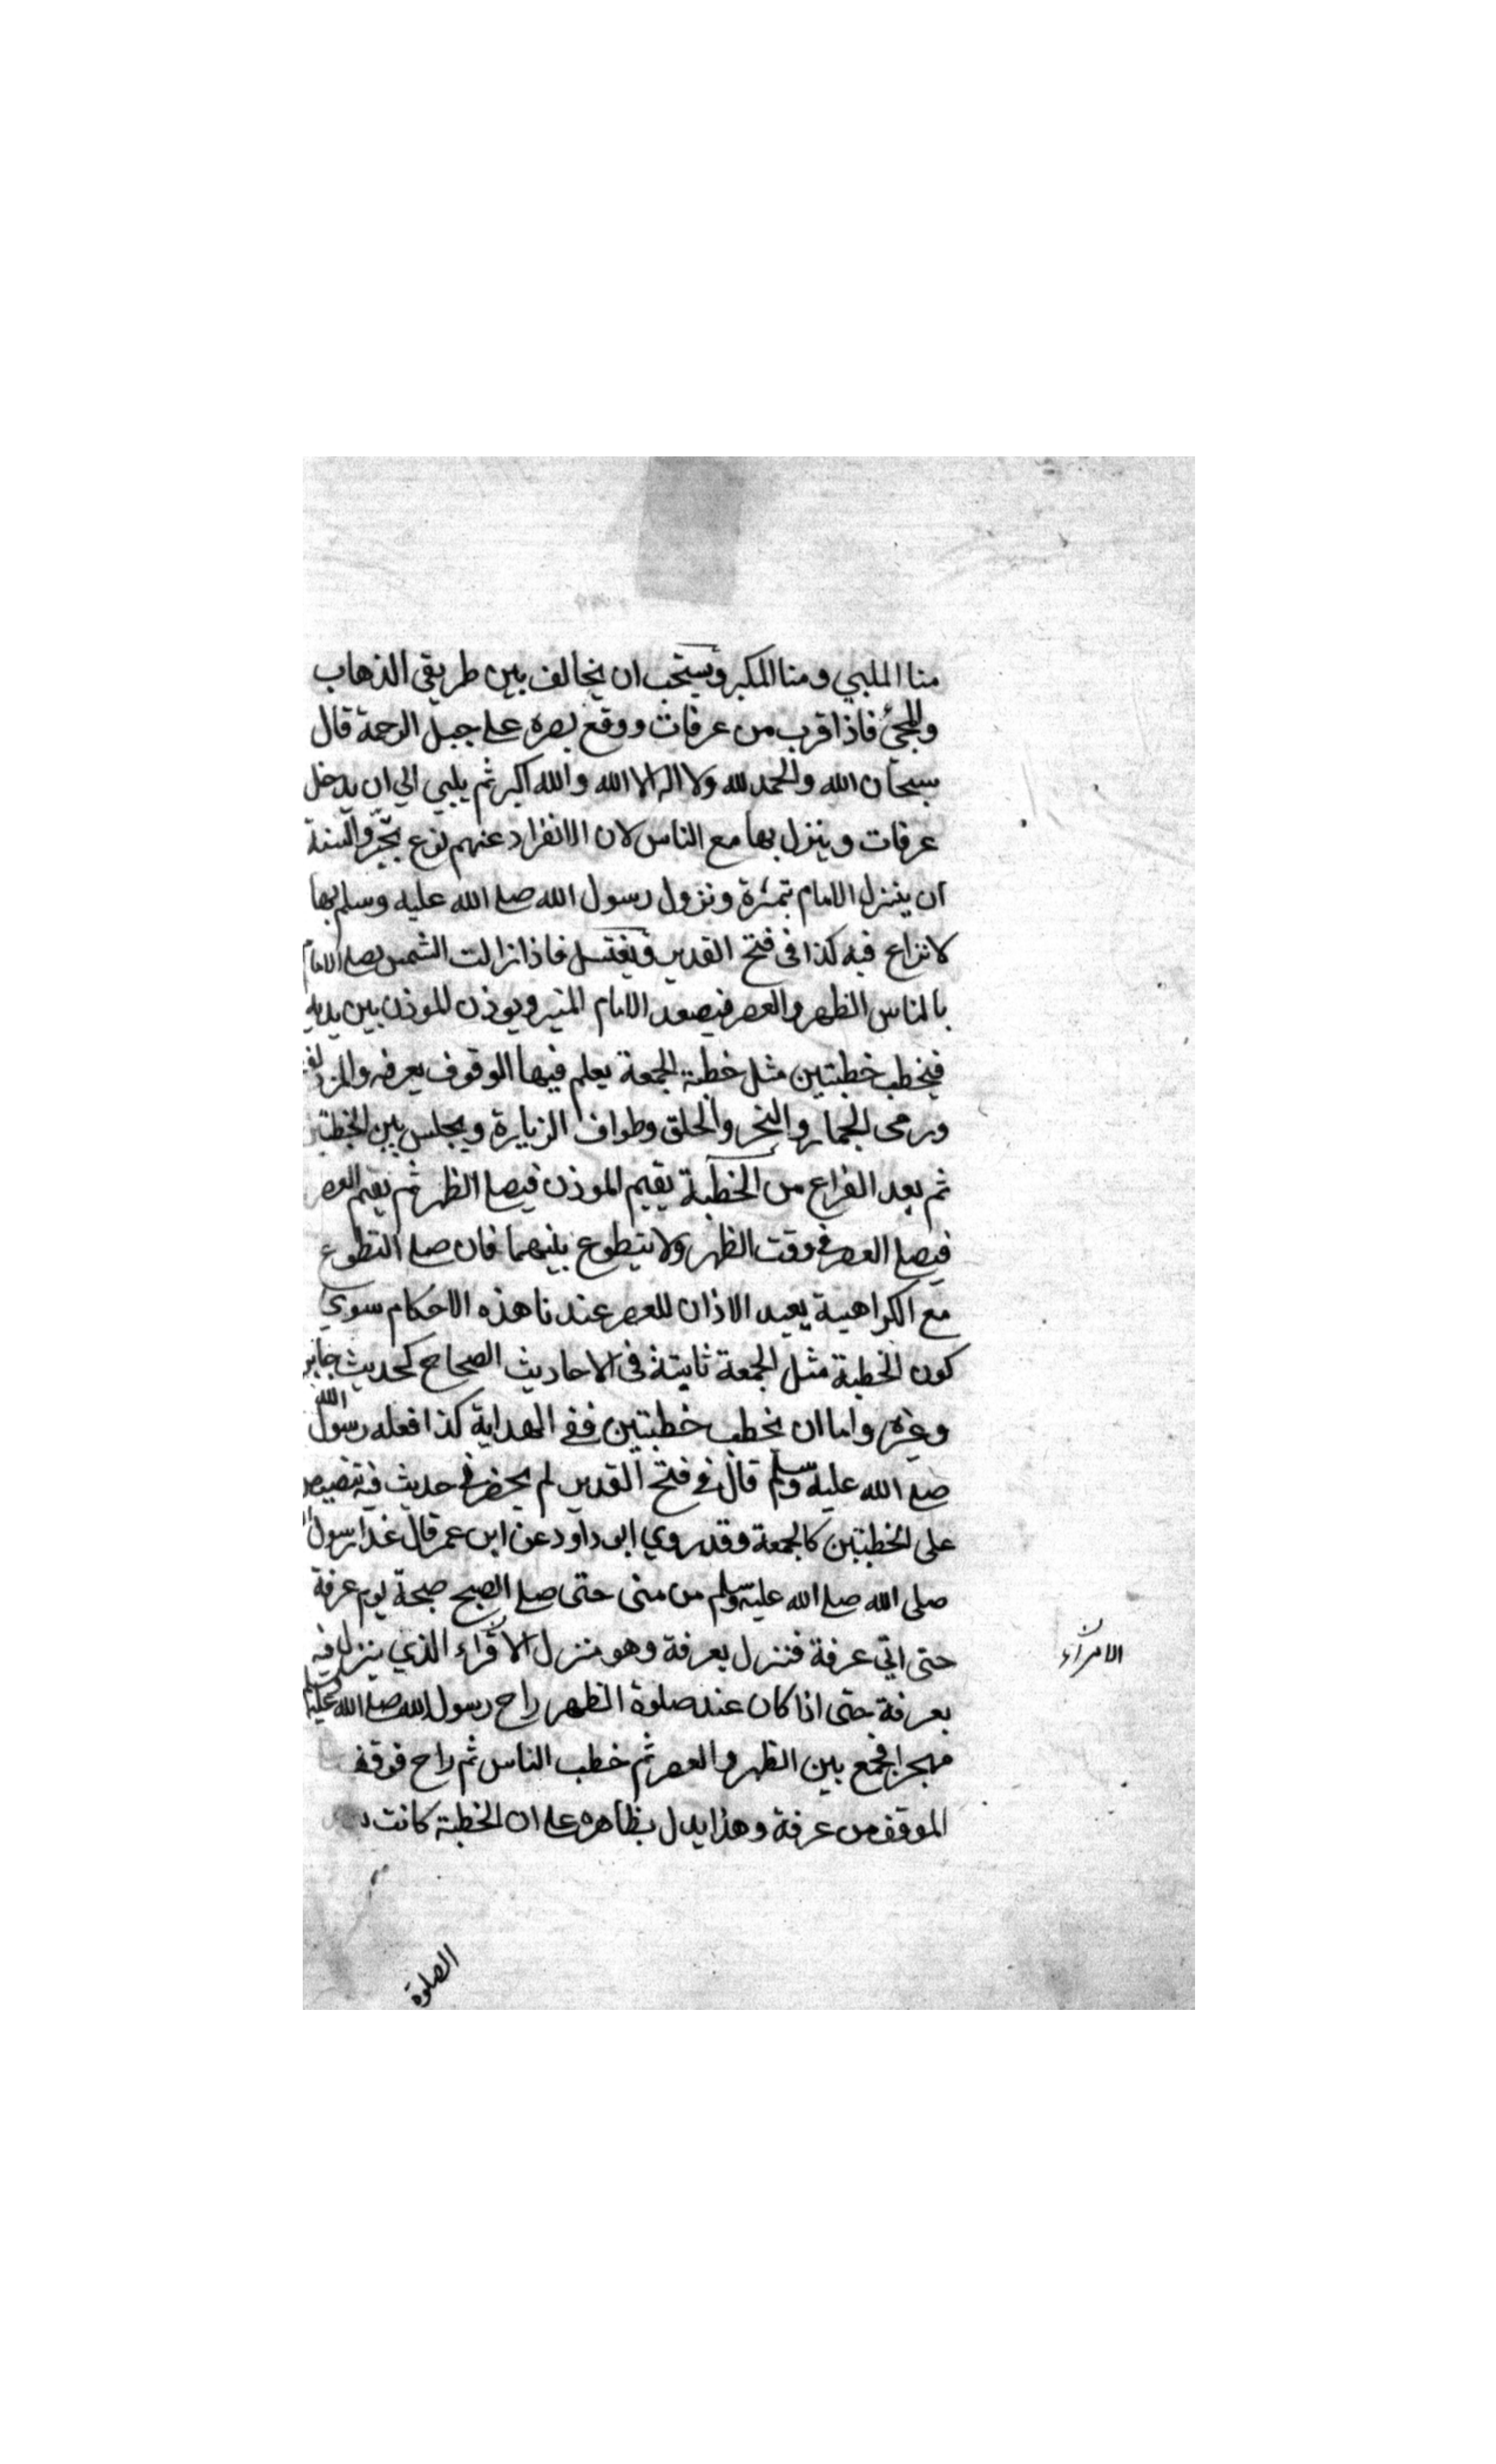 منا الملبي ومنا المكبر ويستحب ان يخالف بين طريقي الذهاب
والمجئ فاذا قرب من عرفات ووقع بصره علي جبل الرحمة قال
سبحان الله والحمد لله ولا اله الا الله والله اكبر ثم يلبي الي ان يدخل
عرفات وينزل بها مع الناس لان الانفراد عنهم نوع تجبر والسنة
ان ينزل الامام بنمرة ونزول رسول الله صلي الله عليه وسلم بها
لا نزاع فيه كذا في فتح القدير ويغتسل فاذا زالت الشمس يصلي الامام
بالناس الظهر والعصر فيصعد الامام المنبر ويوذن الموذن بين يديه
فيخطب خطبتين مثل خطبة الجمعة يعلم فيها الوقوف بعرفه والمزدلفه
ورمى الجمار والنحر والحلق وطواف الزيارة ويجلس بين الخطبتين
ثم بعد الفراغ من الخطبة يقيم الموذن فيصلي الظهر ثم يقيم العصر
فيصلي العصر في وقت الظهر ولا يتطوع بينهما فان صلي التطوع
مع الكراهية يعيد الاذان للعصر عندنا هذه الاحكام سوي
كون الخطبة مثل الجمعة ثابتة في الاحاديث الصحاح كحديث جابر
وغيره واما ان يخطب خطبتين ففي الهداية كذا فعله رسول الله
صلي الله عليه وسلم قال في فتح القدير لم يحضرني حديث فيه تنصيص
على الخطبتين كالجمعة وقد روي ابو داود عن ابن عمر قال غدا رسول
صلى الله صلي الله عليه وسلم من منى حتى صلي الصبح صبحة يوم عرفة
حتى اتي عرفة فنزل بعرفة وهو منزل الاقراء الذي ينزل فيه
الامراء
بعرفة حتى اذا كان عند صلوة الظهر راح رسول الله صلي الله عليه وسلم
مهجرا فجمع بين الظهر والعصر ثم خطب الناس ثم راح فوقف
الموقف من عرفة وهذا يدل بظاهره علي ان الخطبة كانت
الصلوة